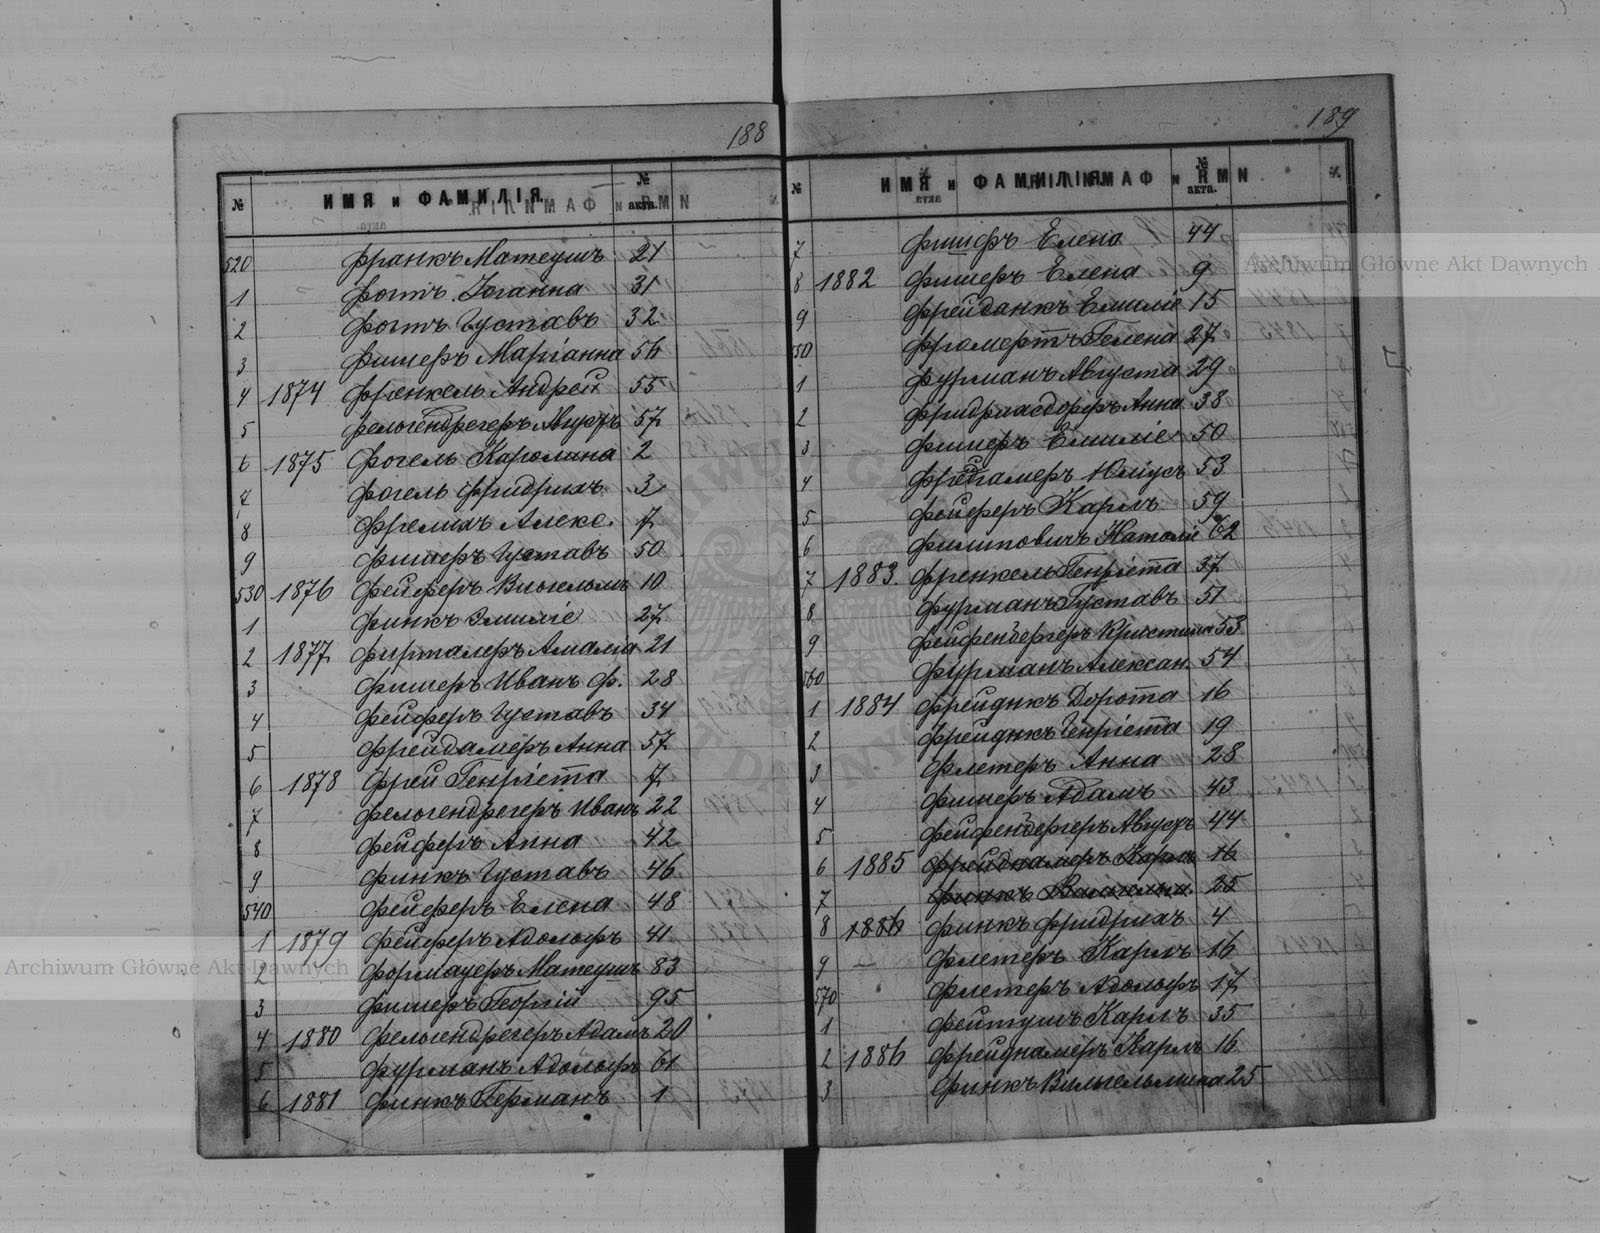 188
№ ИМЯ и ФАМИЛІЯ. № акта.
520 Франкъ Матеушъ 21
1 Фогтъ Іоганна 31
2 Фогтъ Густавъ 32
3 Фишеръ Маріанна 56
4 1874 Френкель Андрей 55
5 Фельгендрегеръ Августъ 57
6 1875 Фогель Каролина 2
7 Фогель Фридрихъ 3
8 Фрелихъ Алекс. 7
9 Фишеръ Густавъ 50
530 1876 Фейферъ Вильгельмъ 10
1 Финкъ Эмиліе 27
2 1877 Фирталеръ Амалія 21
3 Фишеръ Иванъ Ф. 28
4 Фейферъ Густавъ 34
5 Фрейдамеръ Анна 57
6 1878 Фрей Генріета 7
7 Фельгендрегеръ Иванъ 22
8 Фейферъ Анна 42
9 Финкъ Густавъ 46
540 Фейферъ Елена 48
1 1879 Фейферъ Адольфъ 41
2 Матеушъ 83
3 Фишеръ Георгій 95
4 1880 Фельгендрегеръ Адамъ 20
5 Фурманъ Адольфъ 61
6 1881 Финкъ Германъ 1
189
№ ИМЯ и ФАМИЛІЯ № акта.
7 Фишеръ Елена 44
8 1882 Фишеръ Елена 9
9 Фрейданкъ Емиліе 15
550 Фромертъ Гелена 27
1 Фурманъ Августа 29
2 Фридрихсдорфъ Анна 38
3 Фишеръ Емиліе 50
4 Юліусъ 53
5 Фейферъ Карлъ 59
6 Филиповичъ 62
7 1883 Френкель Генріета 37
8 Фурманъ Густавъ 51
9 Фейфенбергеръ Христина 53
560 Фурманъ Алексан. 54
1 1884 Фрейднкъ Дорота 16
2 Фрейднкъ Генріета 19
3 Флетеръ Анна 28
4 Фишеръ Адамъ 43
5 Фейфенбергеръ Августъ 44
6 1885 Фрейднамеръ Карлъ 16
7 Финкъ 25
8 1886 Финкъ Фридрихъ 4
9 — Флетеръ Карлъ 16
570 Флетеръ Адольфъ 17
1 Фейтушъ Карлъ 35
2 1886 Фрейднамеръ Карлъ 16
3 Финкъ Вильгельмина 25
Archiwum Główne Akt Dawnych
Archiwum Główne Akt Dawnych